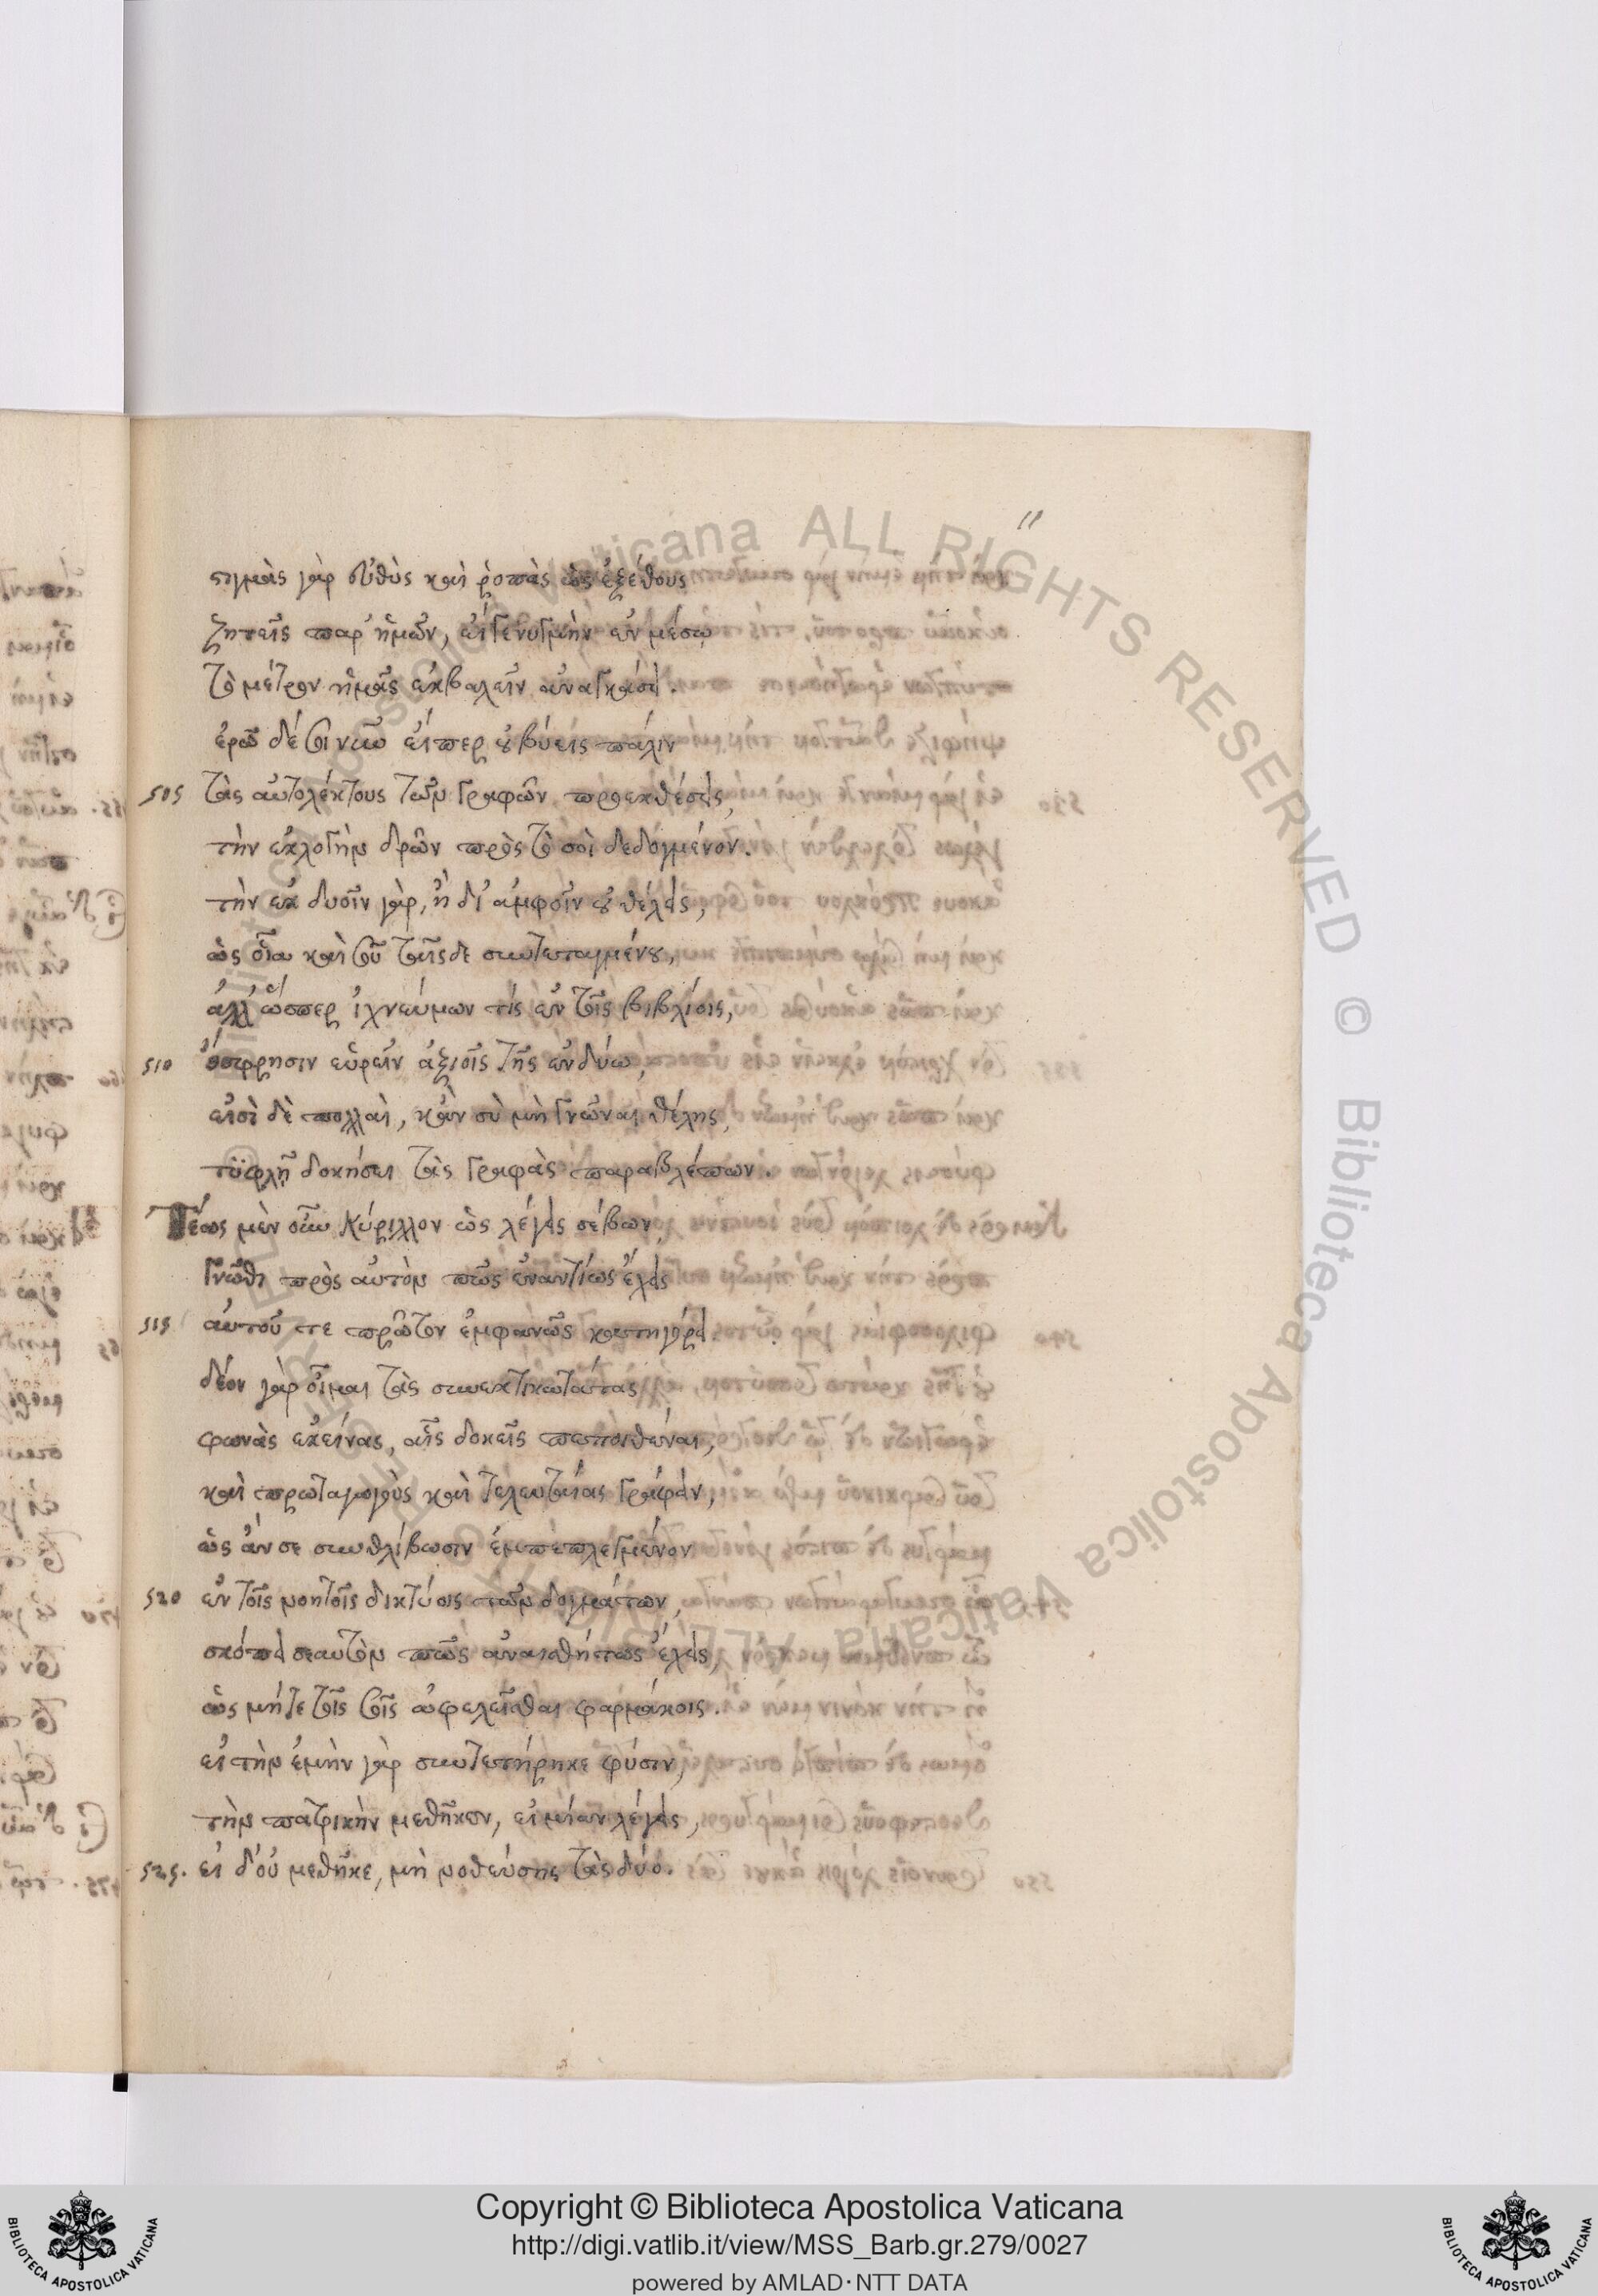 11
στιγμὰς γὰρ εὐθὺς καὶ ῥοπὰς ὡς ἐξέθους
ζητεῖς παρ' ἡμῶν, εἰ γένυ μὴν ἐν μέσῳ
τὸ μέτρον ἡμᾶς ἐκβαλεῖν ἀναγκάσει.
ἐρῶ δέ σοι νῦν εἴπερ οὐ βύεις πάλιν
505 τὰς αὐτολέκτους τῶν γραφῶν προεκθέσεις,
τὴν ἐκλογὴν δρῶν πρὸς τὸ σοὶ δεδογμένον.
τὴν ἐκ δυοῖν γὰρ, ἢ δι' ἀμφοῖν οὐ θέλεις,
ὡς οἷα καὶ σοῦ ταῖςδε συντεταγμένου,
ἀλλ' ὥσπερ ἰχνεύμων τίς ἐν τοῖς βιβλίοις,
510 ὄσφρησιν εὑρεῖν ἀξιοῖς τῆς ἐν δύω,
εἰσὶ δὲ πολλαὶ, κἂν σὺ μὴ γνῶναι θέλης,
τυφλῇ δοκήσει τὰς γραφὰς παραβλέπων.
Τέως μὲν οὖν Κύριλλον ὡς λέγεις σέβων,
γνῶθι πρὸς αὐτὸν πῶς ἐναντίως ἔχεις
515 αὐτοῦ τε πρῶτον ἐμφανῶς κατηγόρει.
δέον γὰρ οἶμαι τὰς συνεκτικωτάτας
φωνὰς ἐκείνας, αἷς δοκεῖς πεποιθέναι,
καὶ πρωταγωγοὺς καὶ τελευταίας γράφειν,
ὡς ἄν σε συνθλίβωσιν ἐμπεπλεγμένον
520 ἐν τοῖς νοητοῖς δικτύοις τῶν δογμάτων,
σκόπει σεαυτὸν πῶς ἀναισθήτως ἔχεις,
ὡς μήτε τοῖς σοῖς ὠφελεῖσθαι φαρμάκοις.
εἰ τὴν ἐμὴν γὰρ συντετήρηκε φύσιν,
τὴν πατρικὴν μεθῆκεν, εἰ μίαν λέγεις,
525. εἰ δ' οὐ μεθῆκε, μὴ νοθεύσης τὰς δύο.
Copyright © Biblioteca Apostolica Vaticana
http://digi.vatlib.it/view/MSS_Barb.gr.279/0027
powered by AMLAD·NTT DATA